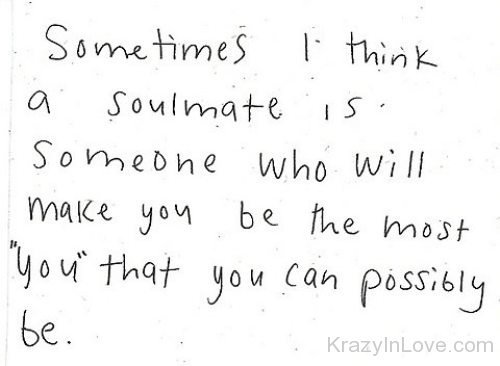 Sometimes I think
a soulmate is
someone who will
make you be the most
"you" that you can possibly
be.
KrazyInLove.com